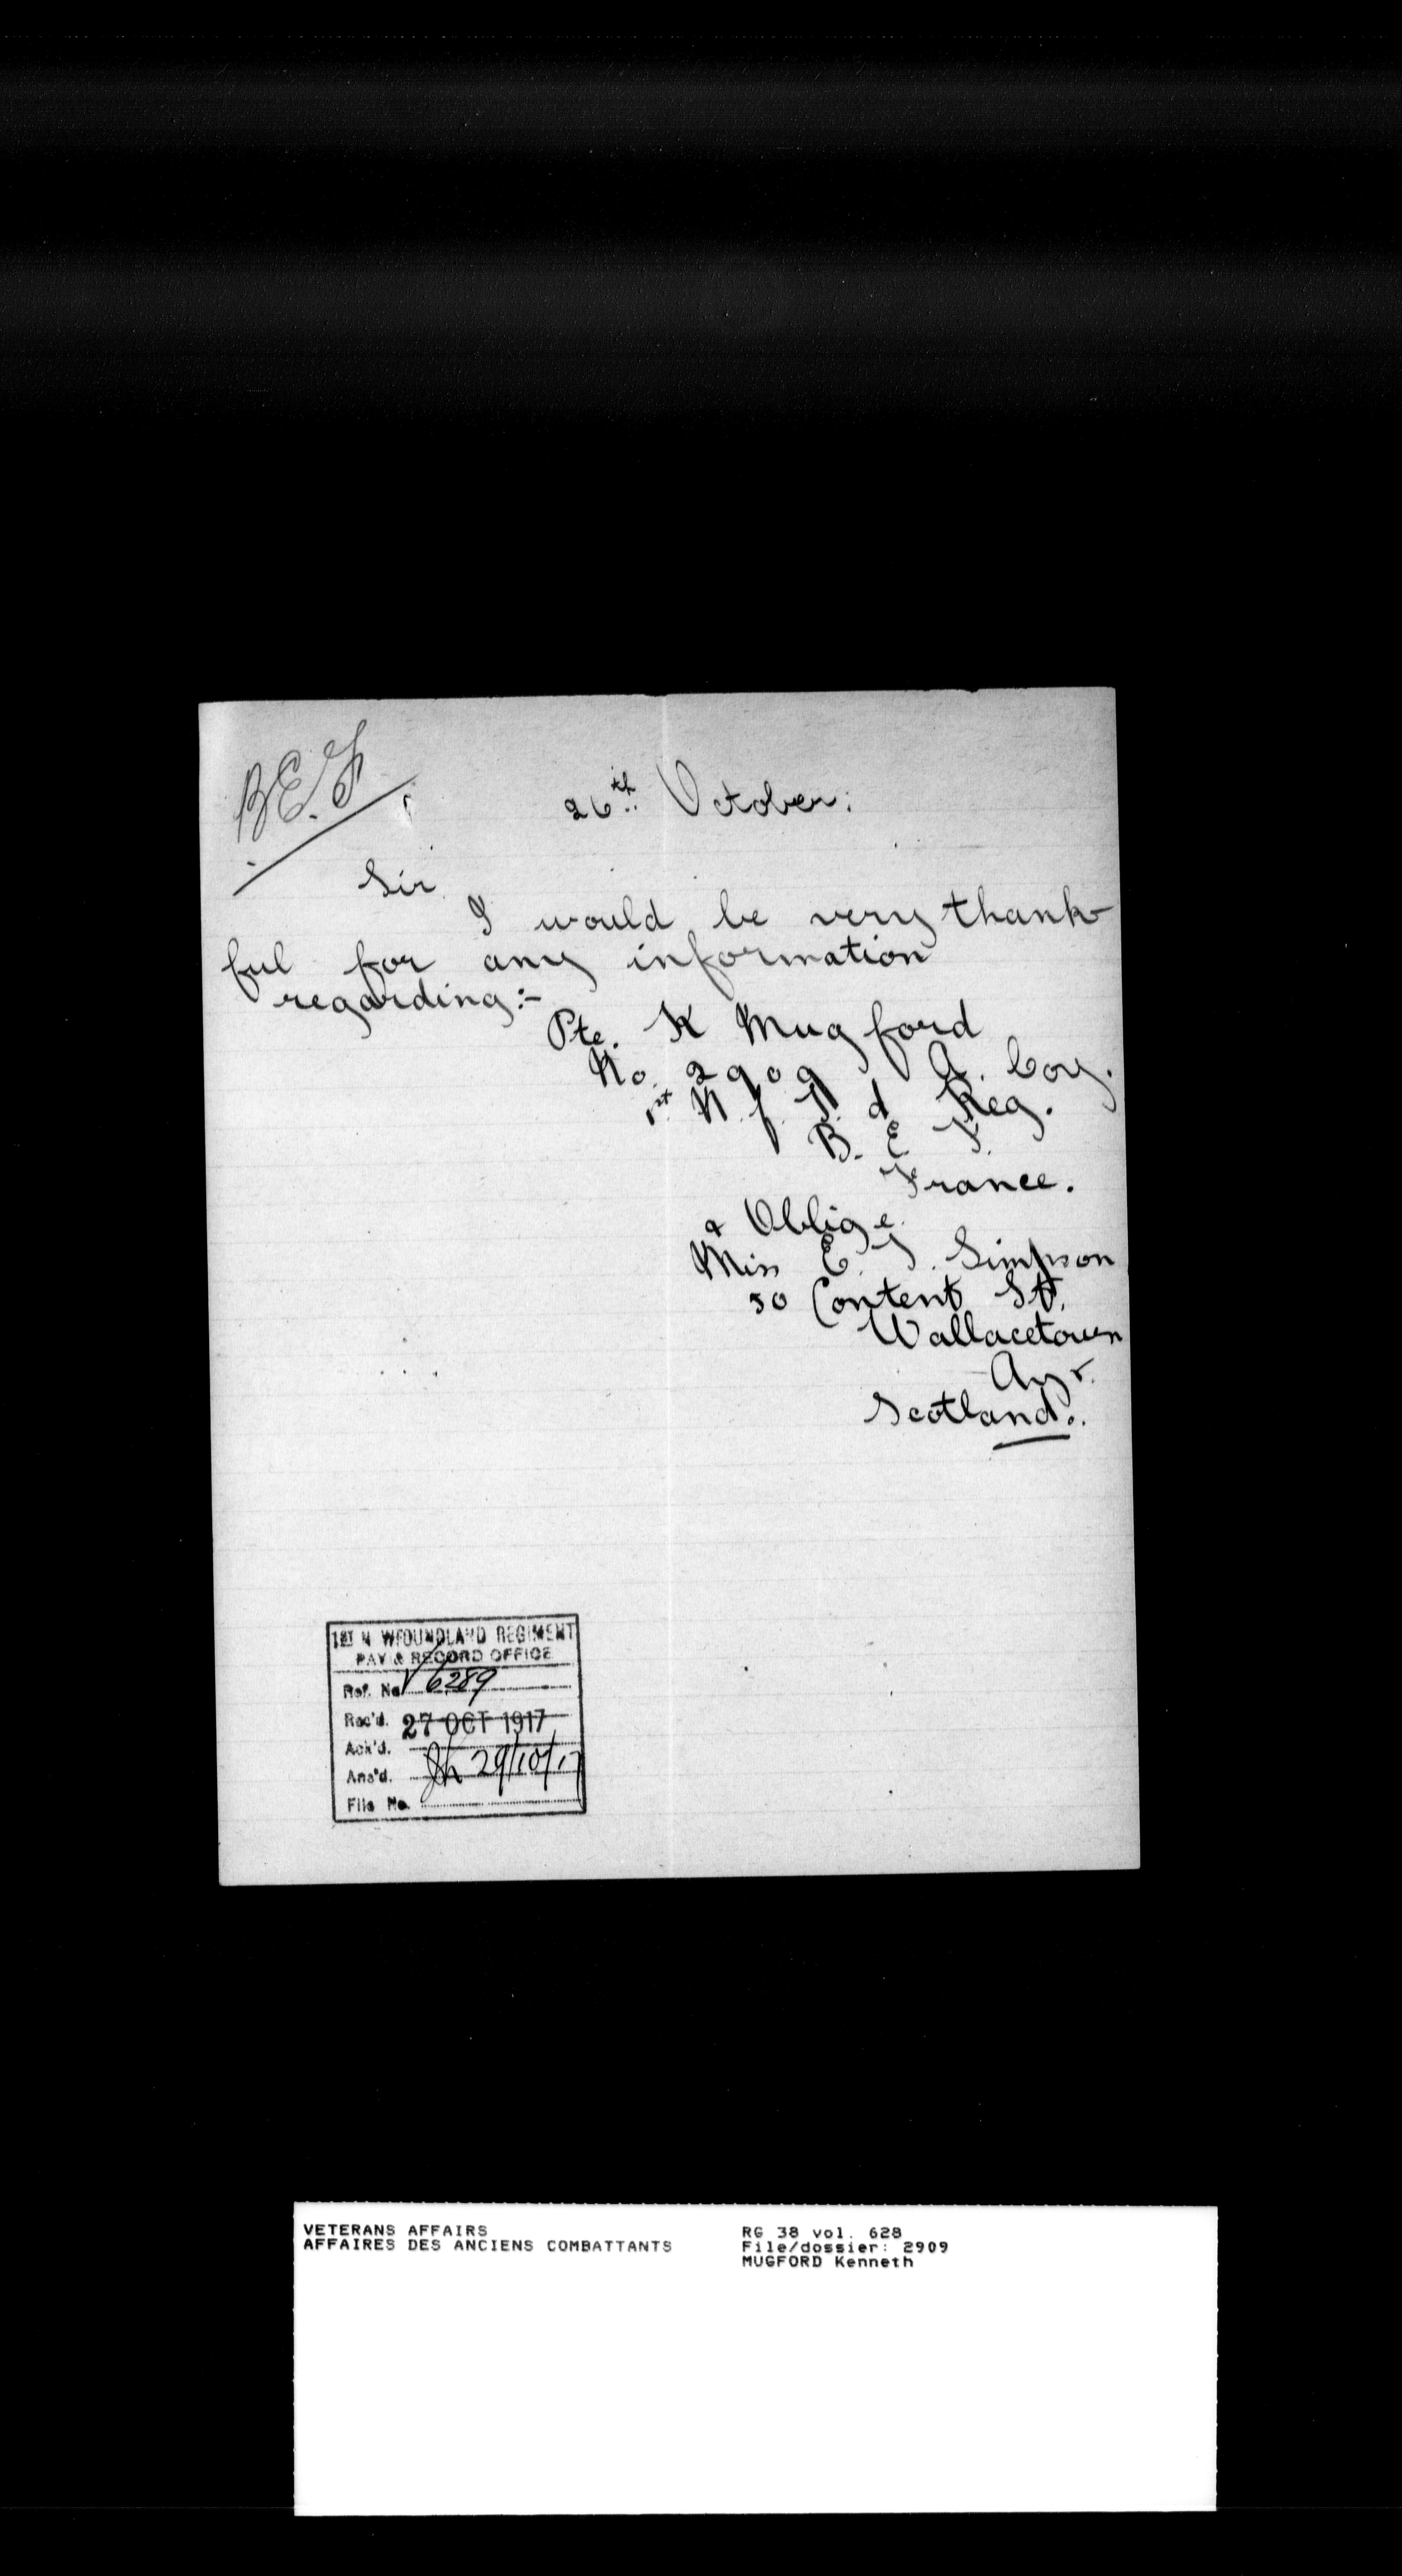 B.E.F
26th October.
Sir
I would be very thank-
ful for any information
regarding:-
Pte. K Mugford
No. 2909 A. Coy.
1st N. f. l. d Reg.
B. E. F.
France.
& Oblige.
Miss E. J. Simpson
50 Content St.
Wallacetown
Ayr.
Scotland.
1ST N WFOUNDLAND REGIMENT
PAY & RECORD OFFICE
Ref. No. 6289
Rec'd. 27 OCT 1917
Ack'd.
Ans'd. 29/10/17
File No.
VETERANS AFFAIRS
AFFAIRES DES ANCIENS COMBATTANTS
RG 38 vol. 628
File/dossier: 2909
MUGFORD Kenneth